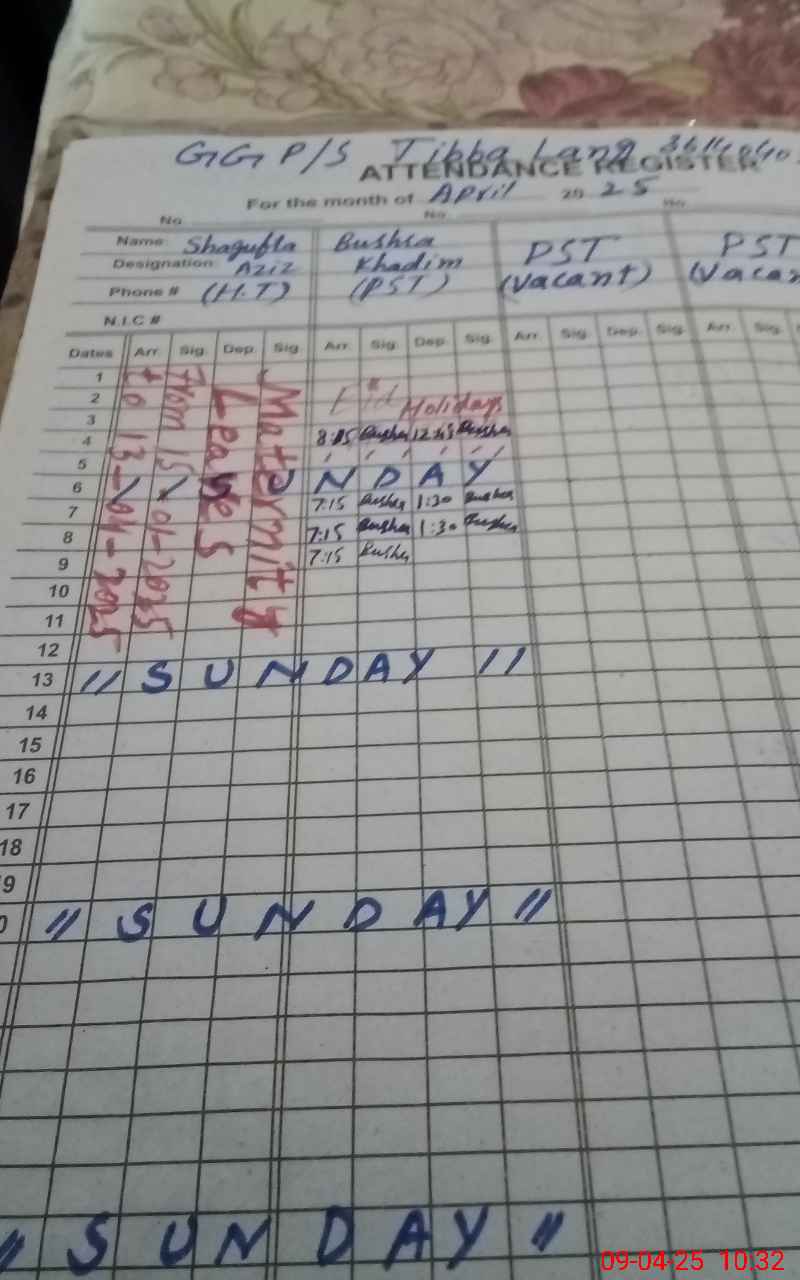 GGP/S Tibba Lang
ATTENDANCE REGISTER
For the month of April 20 25
No. No. No.
Name Shagufta Bushra PST PST
Designation Aziz Khadim (Vacant)
Phone # (H.T) (PST)
N.I.C #
Dates Arr. Sig. Dep. Sig. Arr. Sig. Dep. Sig. Arr. Sig. Dep. Sig. Arr. Sig.
Maternity
Leaves
From 15/01-2025
to 13-04-2025
1
2 Eid Holidays
3
4 8:15 Bushra 12:45 Bushra
5
6 " S U N D A Y "
7 7:15 Bushra 1:30 Bushra
8 7:15 Bushra 1:30 Bushra
9 7:15 Bushra
10
11
12
13 " S U N D A Y "
14
15
16
17
18
" S U N D A Y "
" S U N D A Y "
09-04-25 10:32